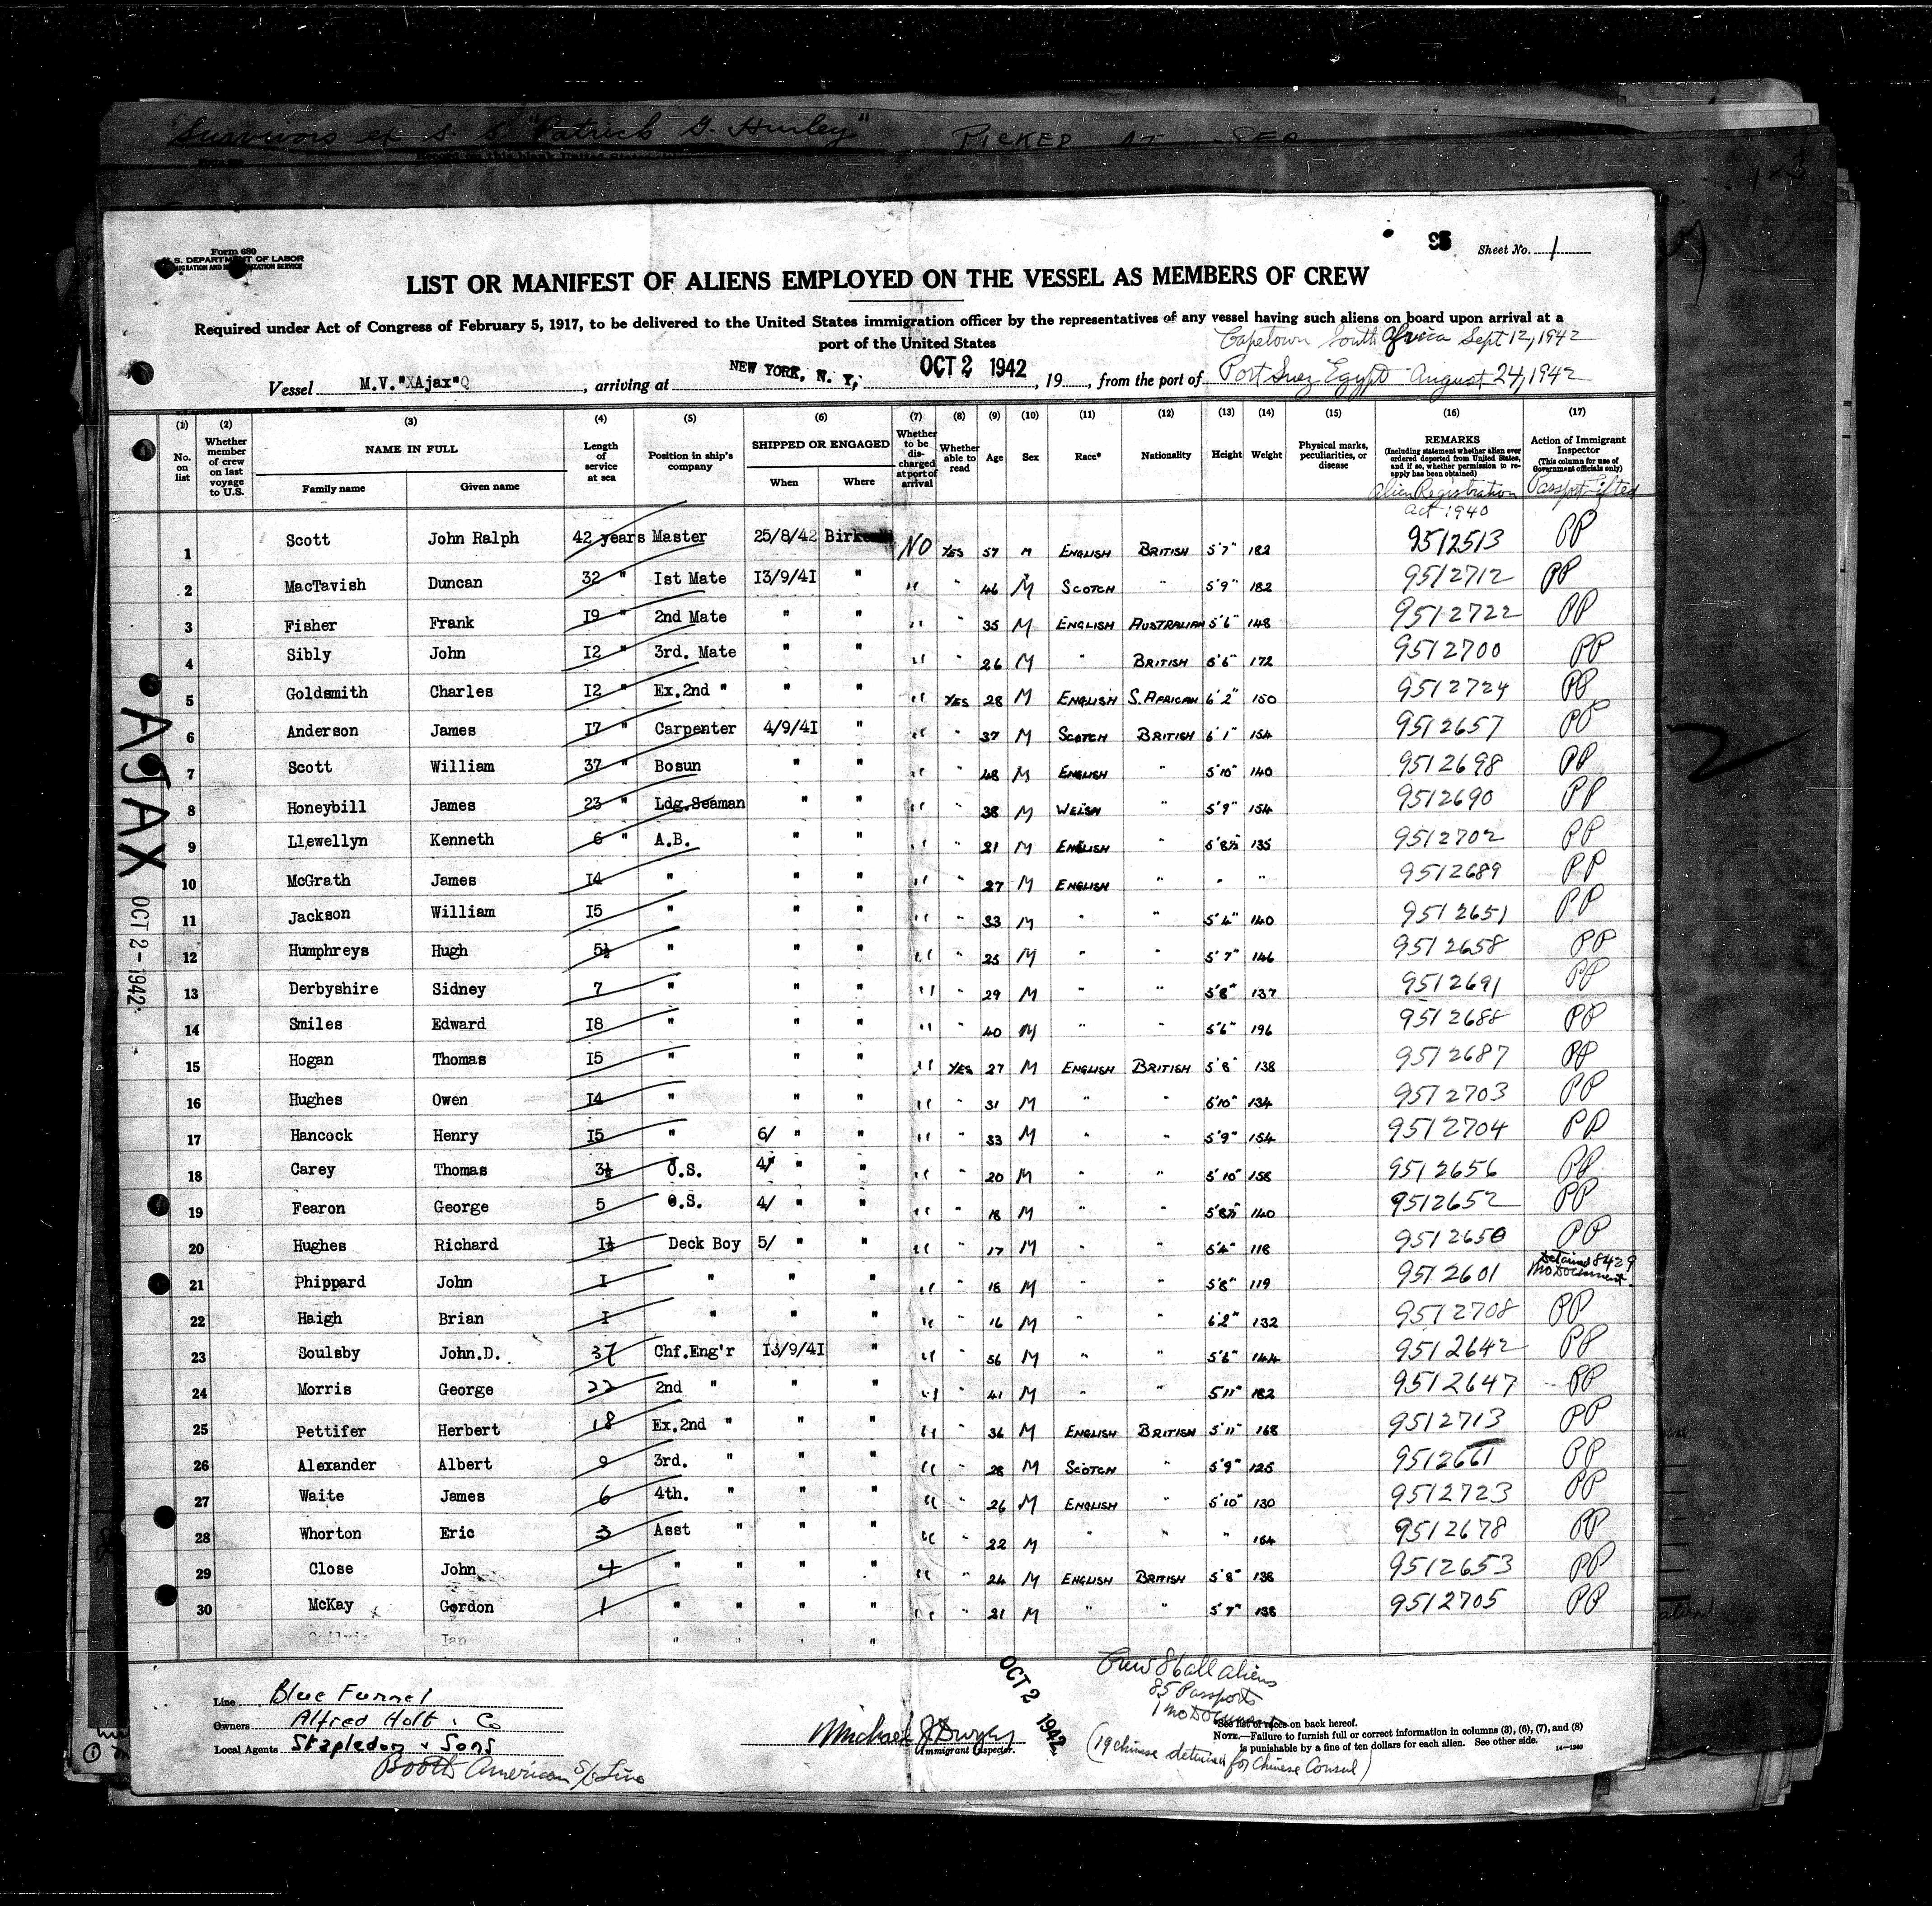 "Survivors ex S. S. "Patrick G. Hurley" PICKED AT SEA
Form 680
U.S. DEPARTMENT OF LABOR
IMMIGRATION AND NATURALIZATION SERVICE
Sheet No. 1
LIST OR MANIFEST OF ALIENS EMPLOYED ON THE VESSEL AS MEMBERS OF CREW
Required under Act of Congress of February 5, 1917, to be delivered to the United States immigration officer by the representatives of any vessel having such aliens on board upon arrival at a
port of the United States
Capetown South Africa Sept 12, 1942
Vessel M.V."XAjax"Q, arriving at NEW YORK, N. Y., OCT 2 1942, 19, from the port of Port Suez Egypt August 24, 1942
(1) (2) (3) (4) (5) (6) (7) (8) (9) (10) (11) (12) (13) (14) (15) (16) (17)
No. on list
Whether member of crew on last voyage to U.S.
NAME IN FULL
Family name Given name
Length of service at sea
Position in ship's company
SHIPPED OR ENGAGED
When Where
Whether to be discharged at port of arrival
Whether able to read
Age Sex Race* Nationality Height Weight
Physical marks, peculiarities, or disease
REMARKS
(Including statement whether alien ever ordered deported from United States, and if so, whether permission to reapply has been obtained)
Alien Registration
Act 1940
Action of Immigrant Inspector
(This column for use of Government officials only)
Passport
1 Scott John Ralph 42 years Master 25/8/42 NO YES 57 M ENGLISH BRITISH 5'7" 182 9512513 PP
2 MacTavish Duncan 32 " Ist Mate I3/9/4I " " " 46 M SCOTCH " 5'9" 182 9512712 PP
3 Fisher Frank I9 " 2nd Mate " " " " 35 M ENGLISH AUSTRALIAN 5'6" 148 9512722 PP
4 Sibly John I2 " 3rd. Mate " " " " 26 M " BRITISH 5'6" 172 9512700 PP
5 Goldsmith Charles I2 " Ex.2nd " " " " YES 28 M ENGLISH S. AFRICAN 6'2" 150 9512724 PP
6 Anderson James I7 " Carpenter 4/9/4I " " " 37 M SCOTCH BRITISH 6'1" 154 9512657 PP
7 Scott William 37 " Bosun " " " " 48 M ENGLISH " 5'10" 140 9512698 PP
8 Honeybill James 23 " Ldg.Seaman " " " " 38 M WELSH " 5'9" 154 9512690 PP
9 Llewellyn Kenneth 6 " A.B. " " " " 21 M ENGLISH " 5'8½ 135 9512702 PP
10 McGrath James I4 " " " " " 27 M ENGLISH " " " 9512689 PP
11 Jackson William I5 " " " " " 33 M " " 5'4" 140 9512651 PP
12 Humphreys Hugh 5½ " " " " " 25 M " " 5'7" 146 9512658 PP
13 Derbyshire Sidney 7 " " " " " 29 M " " 5'8" 137 9512691 PP
14 Smiles Edward I8 " " " " " 40 M " " 5'6" 196 9512688 PP
15 Hogan Thomas I5 " " " " YES 27 M ENGLISH BRITISH 5'8" 138 9512687 PP
16 Hughes Owen I4 " " " " " 31 M " " 5'10" 134 9512703 PP
17 Hancock Henry I5 " 6/ " " " " 33 M " " 5'9" 154 9512704 PP
18 Carey Thomas 3½ O.S. 4/ " " " " 20 M " " 5'10" 158 9512656 PP
19 Fearon George 5 O.S. 4/ " " " " 18 M " " 5'8½" 140 9512652 PP
20 Hughes Richard I½ Deck Boy 5/ " " " " 17 M " " 5'4" 118 9512650 PP
21 Phippard John I " " " " " 18 M " " 5'8" 119 9512601 Detained 8429 No Document
22 Haigh Brian I " " " " " 16 M " " 6'2" 132 9512708 PP
23 Soulsby John.D. 37 Chf.Eng'r I3/9/4I " " " 56 M " " 5'6" 144 9512642 PP
24 Morris George 22 2nd " " " " " 41 M " " 5'11" 182 9512647 PP
25 Pettifer Herbert 18 Ex.2nd " " " " " 36 M ENGLISH BRITISH 5'11" 168 9512713 PP
26 Alexander Albert 9 3rd. " " " " " 28 M SCOTCH " 5'9" 125 9512661 PP
27 Waite James 6 4th. " " " " " 26 M ENGLISH " 5'10" 130 9512723 PP
28 Whorton Eric 3 Asst " " " " " 22 M " " " 164 9512678 PP
29 Close John 4 " " " " " " 24 M ENGLISH BRITISH 5'8" 138 9512653 PP
30 McKay Gordon 1 " " " " " " 21 M " " 5'7" 138 9512705 PP
Ian " " " "
AJAX OCT 2-1942
Line Blue Funnel
Owners Alfred Holt & Co
Local Agents Stapledon & Sons
Booth American S/S Line
Michael J Dwyer
Immigrant Inspector.
OCT 2 1942
Crew 86 all aliens
85 Passports
1 No Document
(19 Chinese detained for Chinese Consul)
*See list of races on back hereof.
NOTE.—Failure to furnish full or correct information in columns (3), (6), (7), and (8)
is punishable by a fine of ten dollars for each alien. See other side.
14—1240